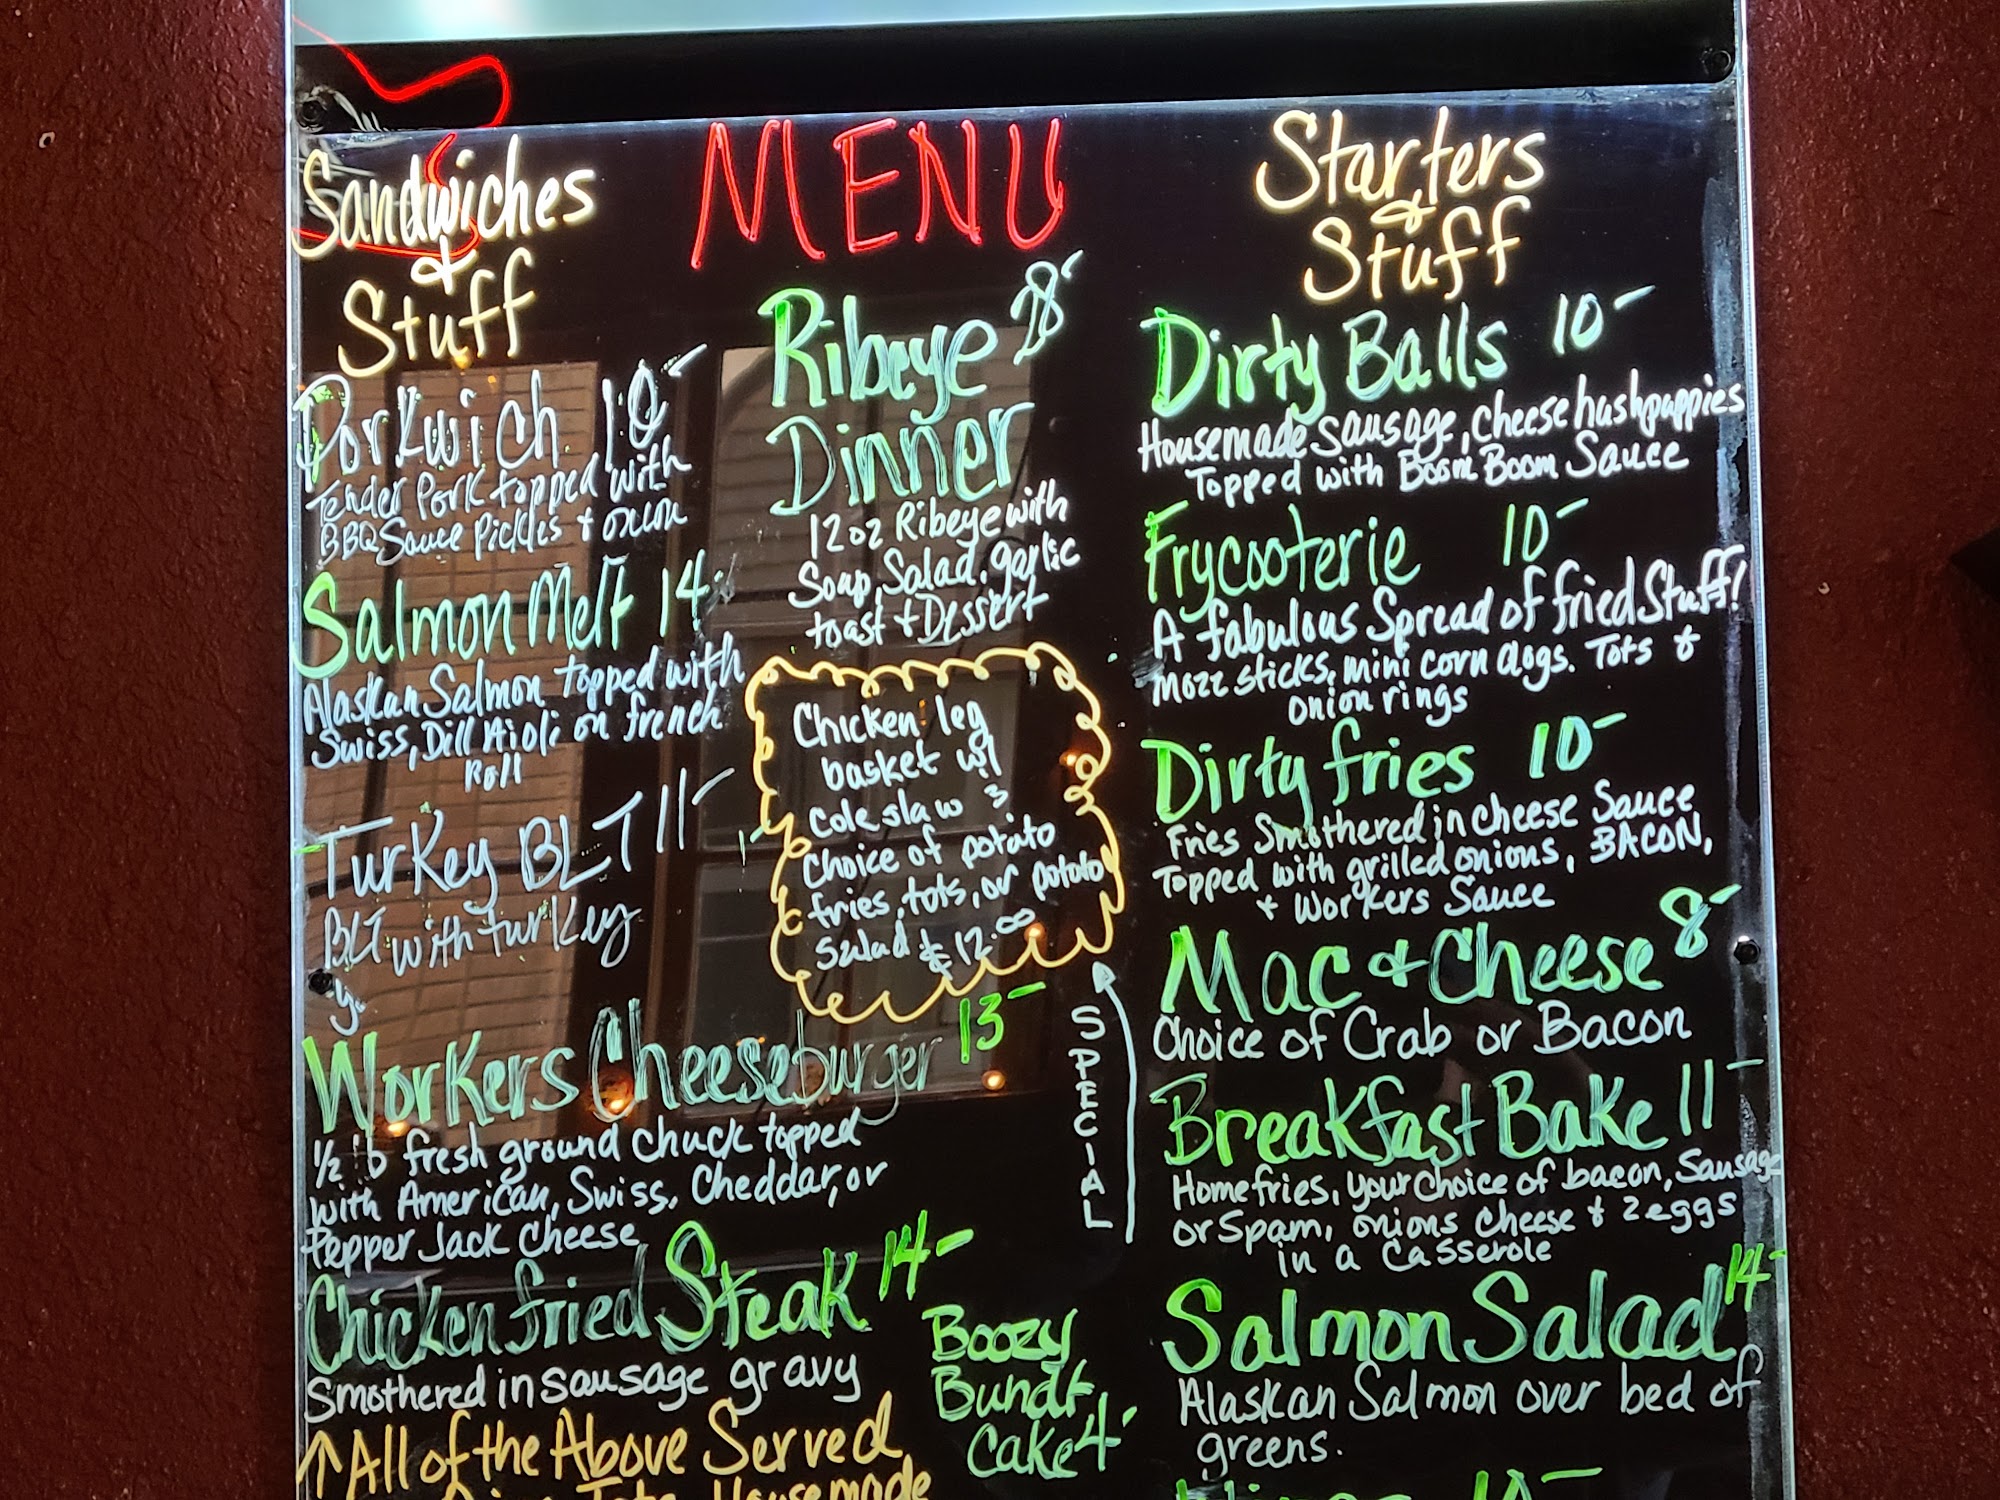 MENU
Sandwiches
&
Stuff
Porkwich 10-
Tender Pork topped with
BBQ Sauce Pickles & onion
Salmon Melt 14-
Alaskan Salmon topped with
Swiss, Dill Aioli on french
Roll
Turkey BLT 11-
BLT with turkey
y.
Workers Cheeseburger 13-
1/2 lb fresh ground chuck topped
with American, Swiss, Cheddar, or
Pepper Jack Cheese
Chicken fried Steak 14-
Smothered in sausage gravy
↑ All of the Above Served
Tots, Housemade
Ribeye 28-
Dinner
12oz Ribeye with
Soup, Salad, garlic
toast & Dessert
Chicken leg
basket w/
Cole slaw &
Choice of potato
fries, tots, or potato
salad $12.00
SPECIAL
Boozy
Bundt
Cake 4-
Starters
&
Stuff
Dirty Balls 10-
Housemade sausage, cheese hushpuppies
Topped with Boom Boom Sauce
Frycooterie 10-
A fabulous Spread of fried Stuff!
Mozz sticks, mini corn dogs. Tots &
onion rings
Dirty fries 10-
Fries Smothered in cheese Sauce
Topped with grilled onions, BACON,
& Workers Sauce
Mac & Cheese 8-
Choice of Crab or Bacon
Breakfast Bake 11-
Homefries, your choice of bacon, Sausage
or Spam, onions cheese & 2 eggs
in a Casserole
Salmon Salad 14-
Alaskan Salmon over bed of
greens.
10-